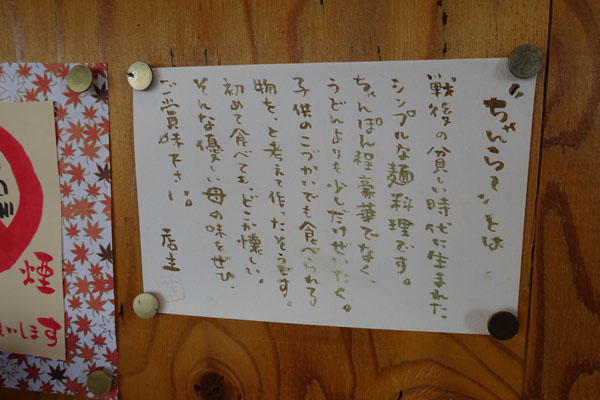 "ちゃんらーめん"とは
戦後の貧しい時代に生まれた
シンプルな麺料理です。
ちゃんぽん程豪華でなく、
うどんよりも少しだけぜいたく。
子供のこづかいでも食べられる
物を、と考えて作ったそうです。
初めて食べても、どこか懐しい。
そんな優しい母の味をぜひ、
ご賞味下さい。 店主
煙
します